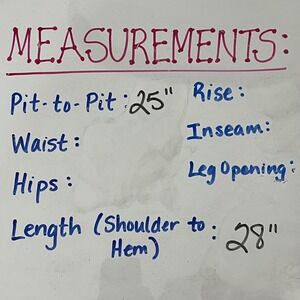 MEASUREMENTS:
Pit-to-Pit : 25"
Waist :
Hips :
Length (Shoulder to
Hem) : 28"
Rise :
Inseam:
Leg Opening: